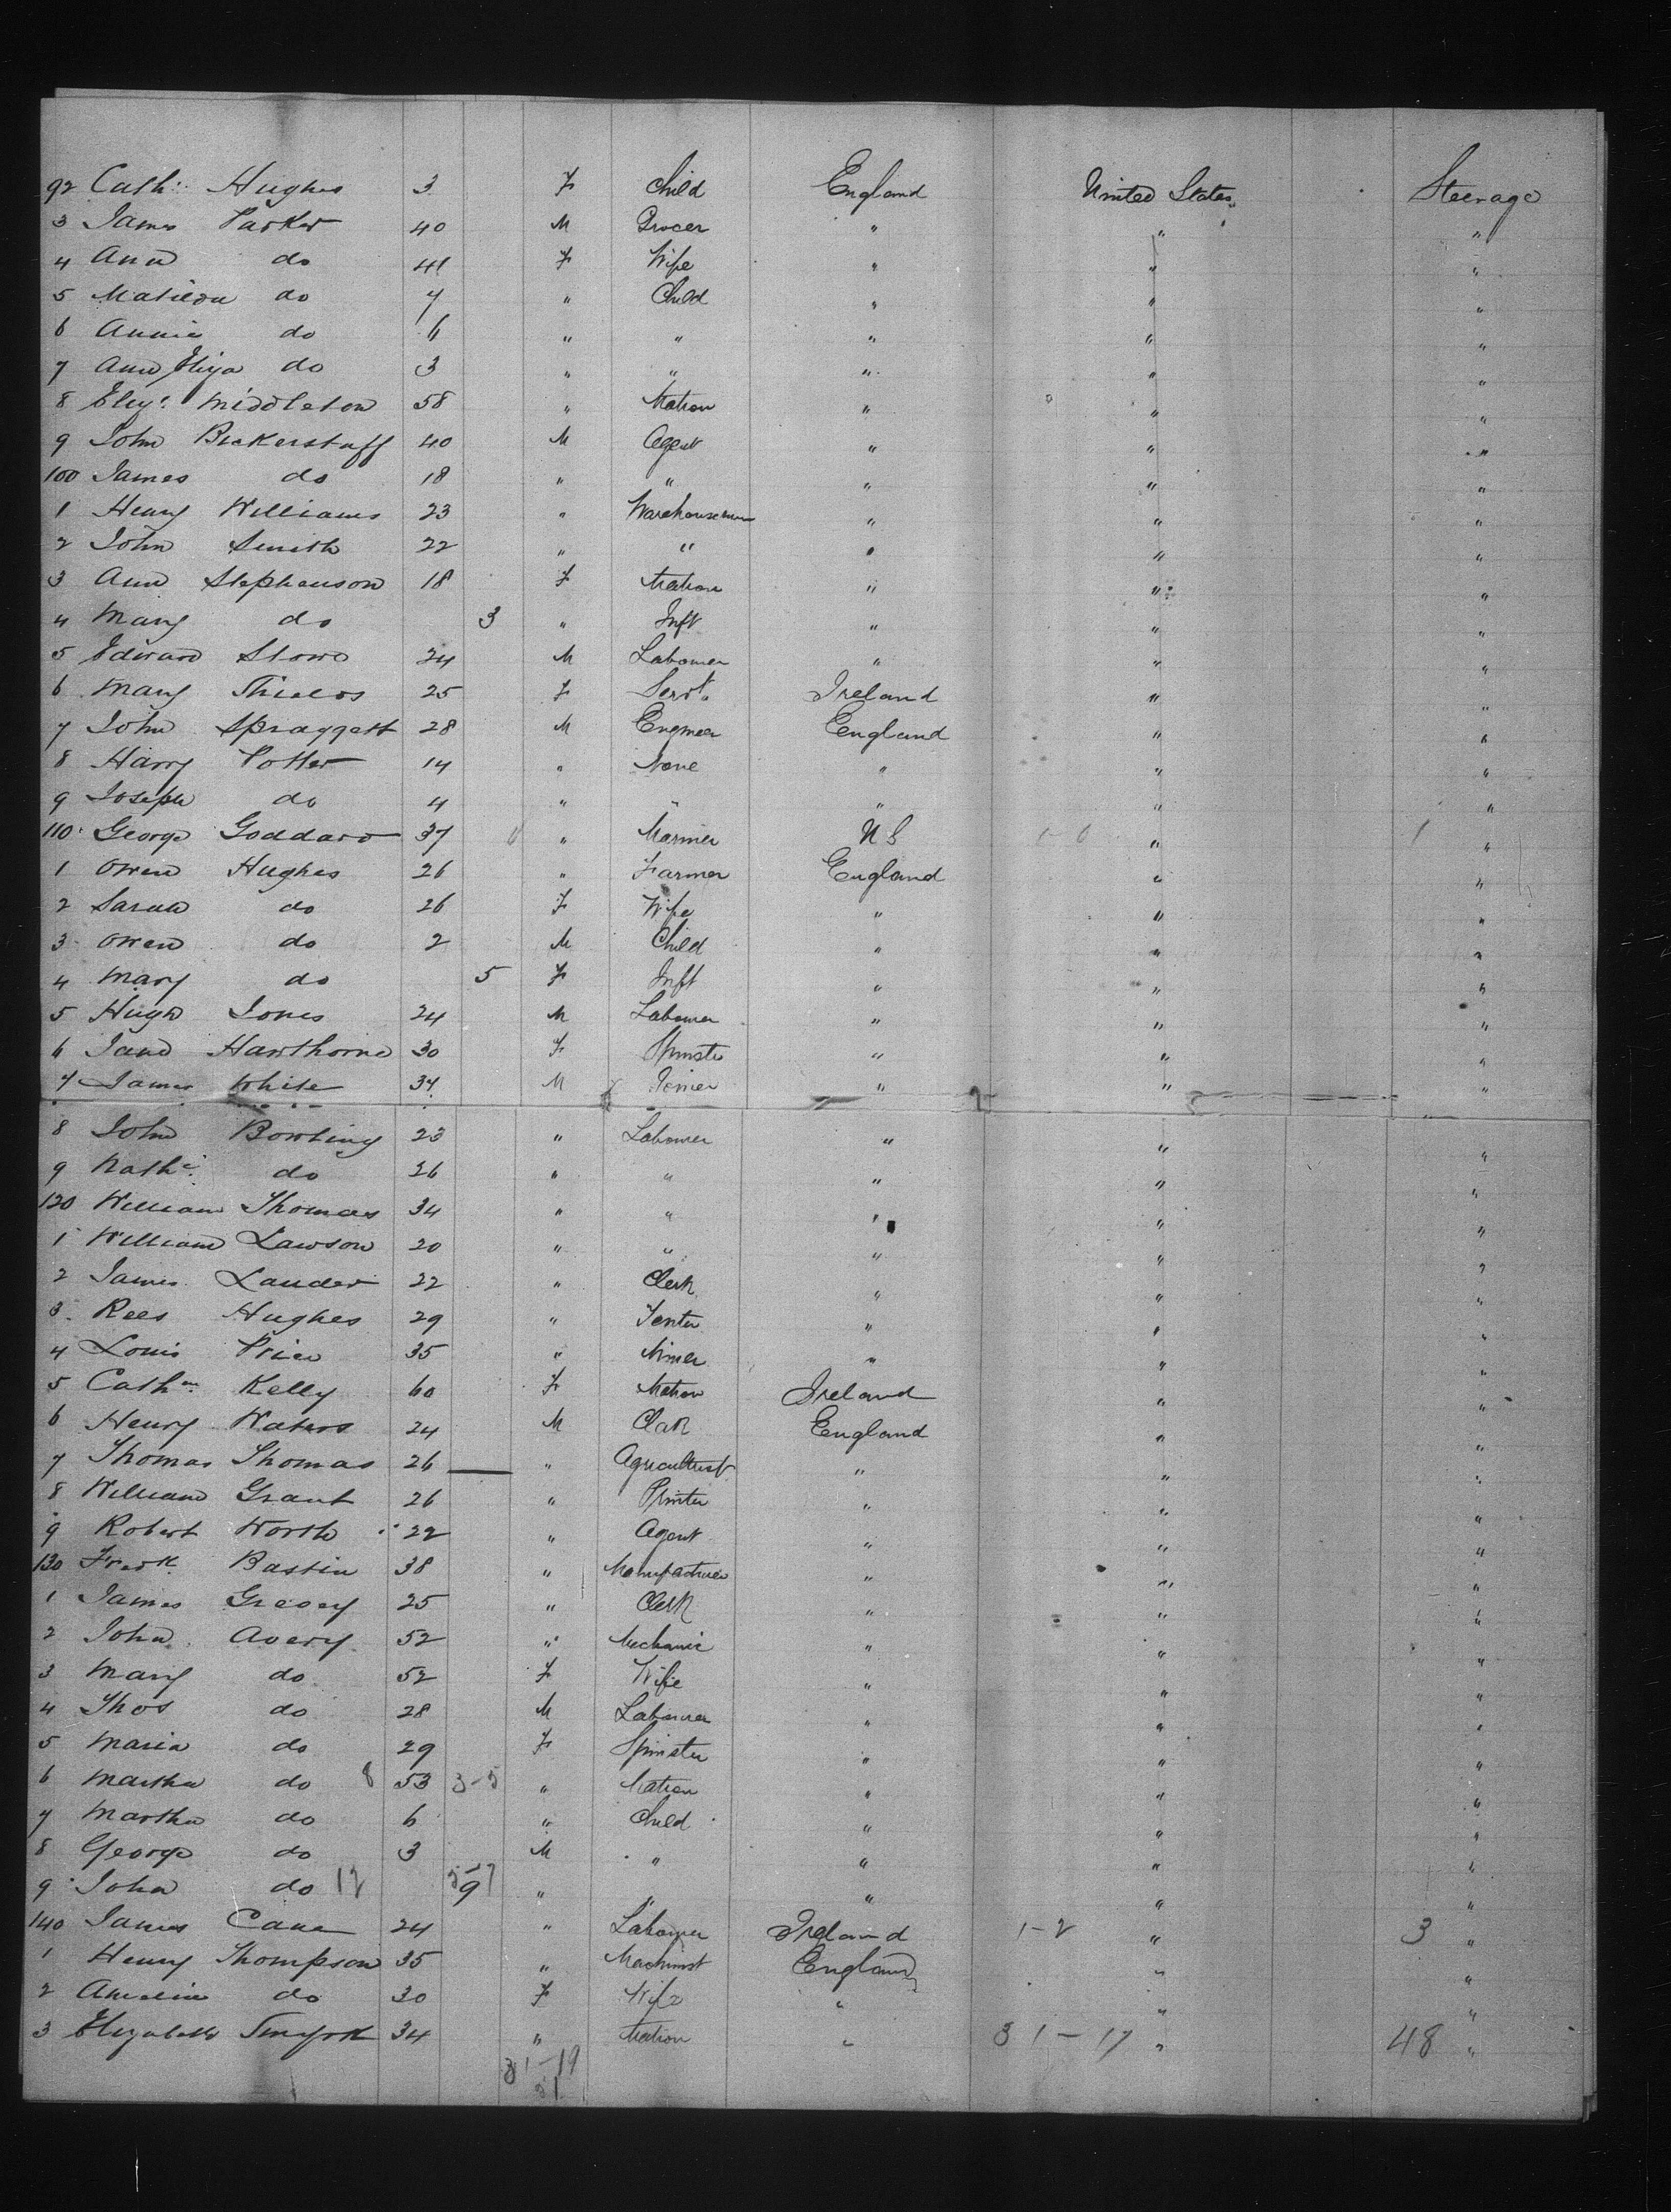 92 Cath: Hughes 3 F Child England United States Steerage
3 James Parker 40 M Grocer " " "
4 Ann do 41 F Wife " " "
5 Matilda do 7 " Child " " "
6 Annie do 6 " " " " "
7 Ann Eliza do 3 " " " " "
8 Eliz: Middleton 58 " Matron " " "
9 John Bickerstaff 40 M Agent " " "
100 James do 18 " " " " "
1 Henry Williams 23 " Warehouseman " " "
2 John Smith 22 " " " " "
3 Ann Stephenson 18 F Matron " " "
4 Mary do 3 " Inft " " "
5 Edward Stowe 24 M Labourer " " "
6 Mary Shields 25 F Servt. Ireland " "
7 John Spraggett 28 M Engineer England " "
8 Harry Potter 14 " None " " "
9 Joseph do 4 " " " " "
110 George Goddard 37 " Mariner U S 1-0 " 1 "
1 Owen Hughes 26 " Farmer England " "
2 Sarah do 26 F Wife " " "
3 Owen do 2 M Child " " "
4 Mary do 5 F Inft " " "
5 Hugh Jones 24 M Labourer " " "
6 Jane Hawthorne 30 F Spinster " " "
7 James White 34 M Joiner " " "
8 John Bowling 23 " Labourer " " "
9 Nath: do 26 " " " " "
120 William Thomas 34 " " " " "
1 William Lawson 20 " " " " "
2 James Lauder 22 " Clerk " " "
3 Rees Hughes 29 " " " "
4 Louis Price 35 " Miner " " "
5 Cathn. Kelly 60 F Matron Ireland " "
6 Henry Waters 24 M Clerk England " "
7 Thomas Thomas 26 " Agriculturist " " "
8 William Grant 26 " Printer " " "
9 Robert Worth 22 " Agent " " "
130 Fredk. Bastin 38 " Manufacturer " " "
1 James Greavy 25 " Clerk " " "
2 John Avery 52 " Mechanic " " "
3 Mary do 52 F Wife " " "
4 Thos do 28 M Labourer " " "
5 Maria do 29 F Spinster " " "
6 Martha do 8 53 3-5 " Matron " " "
7 Martha do 6 " Child " " "
8 George do 3 M " " " "
9 John do 12 9 " " " " "
140 James Cane 24 " Labourer Ireland 1-2 " 3 "
1 Henry Thompson 35 " Machinist England " "
2 Amelia do 30 F Wife " " "
3 Elizabeth 34 " Matron " 31-17 " 48 "
31-19
51